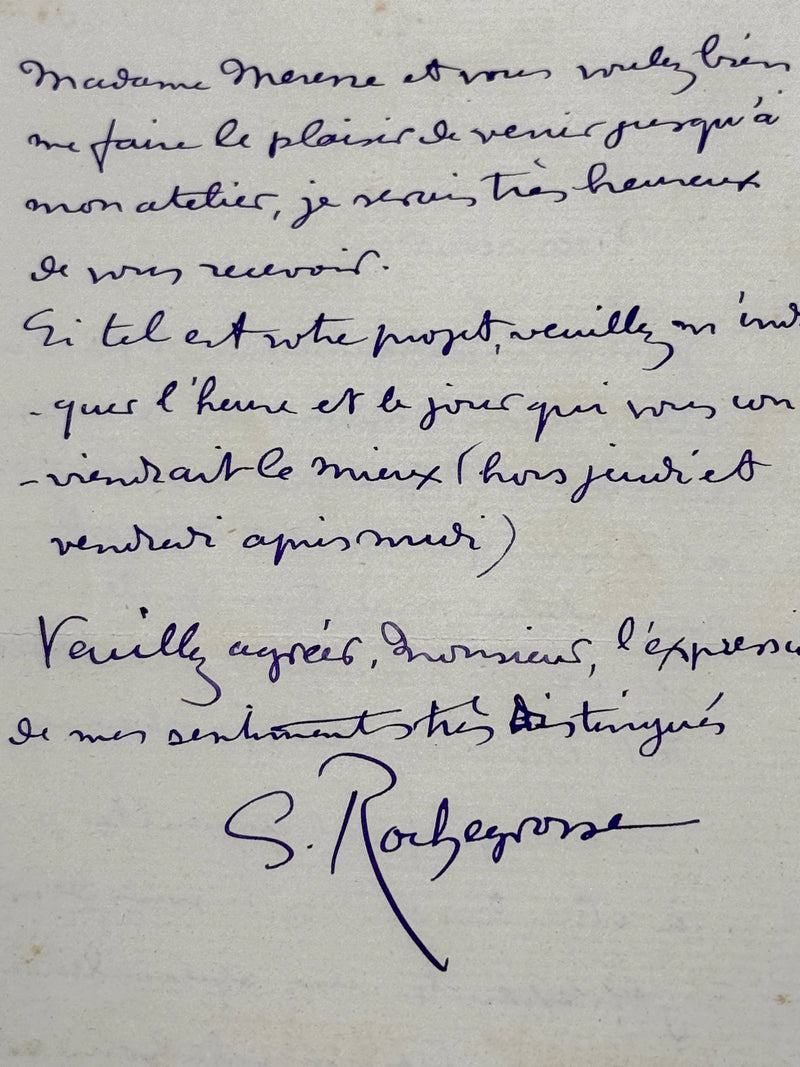 Madame Meresse et vous voulez bien
me faire le plaisir de venir jusqu'à
mon atelier, je serais très heureux
de vous recevoir.
Si tel est votre projet, veuillez m'indi
-quer l'heure et le jour qui vous con
-viendrait le mieux (hors jeudi et
vendredi après midi)
Veuillez agréer, Monsieur, l'expressi
de mes sentiments très distingués
G. Rochegrosse